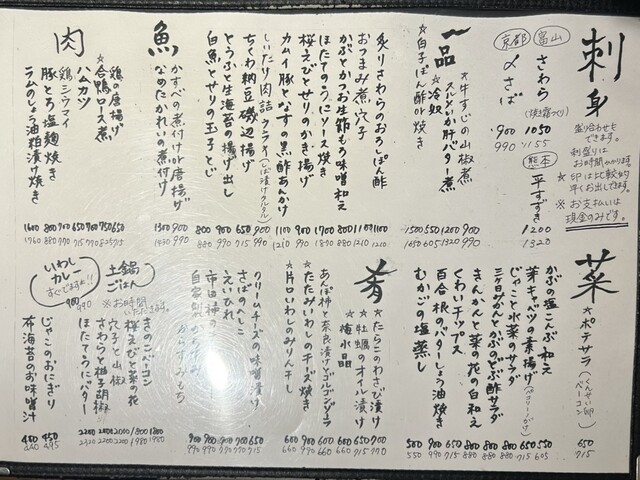 刺身
盛り合わせも
できます。
刺盛りは
お時間かかります。
☆印は比較的
早くお出しできます。
※お支払いは
現金のみです。
富山
さわら
(焼き霜つくり)
1050
1155
京都
〆さば
900
990
熊本
平すずき
1200
1320
一品
☆牛すじの山椒煮 900 990
スルメいか肝バター煮 1200 1320
☆冷奴 550 605
☆白子ぽん酢or焼き 1500 1650
炙りさわらのおろしぽん酢 1100 1210
おつまみ煮穴子
かぶとかつお生節もろ味噌和え 800 880
ほたてのうにソース焼き
桜えびとせりのかき揚げ 900 990
カムイ豚となすの黒酢あんかけ 1100 1210
しいたけ肉詰フライ(しば漬けタルタル) 900 990
ちくわ納豆磯辺揚げ 650 715
とうふと生海苔の揚げ出し 900 990
白魚とせりの玉子とじ 800 880
魚
かすべの煮付けor唐揚げ 900 990
なめたかれいの煮付け 1300 1430
肉
鶏の唐揚げ 650 715
☆合鴨ロース煮 750 825
ハムカツ 650 715
鶏シウマイ 700 770
豚とろ塩麹焼き 800 880
ラムのしょう油粕漬け焼き 1600 1760
菜
☆ポテサラ(くんせい卵・ベーコン) 650 715
かぶの塩こんぶ和え 550 605
芽キャベツの素揚げ 650 715
じゃこと水菜のサラダ 800 880
三ケ日みかんとかぶの 酢サラダ 800 880
きんかんと菜の花の白和え 800 880
くわいチップス 650 715
百合根のバターしょう油焼き 900 990
むかごの塩蒸し 500 550
肴
☆たらこのわさび漬け 700 770
☆牡蠣のオイル漬け 650 715
☆梅水晶 600 660
あんぽ柿と奈良漬けゴルゴンゾーラ
☆たたみいわしのチーズ焼き
☆片口いわしのみりん干し 600 660
クリームチーズの味噌漬け 650 715
さばのへしこ
えいひれ
市田柿の
自家製
からすみもち
土鍋ごはん
※お時間いただきます。
きのことベーコン 1800 1980
桜えびと菜の花 1800 1980
穴子と山椒 2000 2200
さわらと柚子胡椒 2000 2200
ほたてうにバター
いわしカレー
すぐできます!!
900 990
じゃこのおにぎり 450 495
布海苔のお味噌汁 400 440